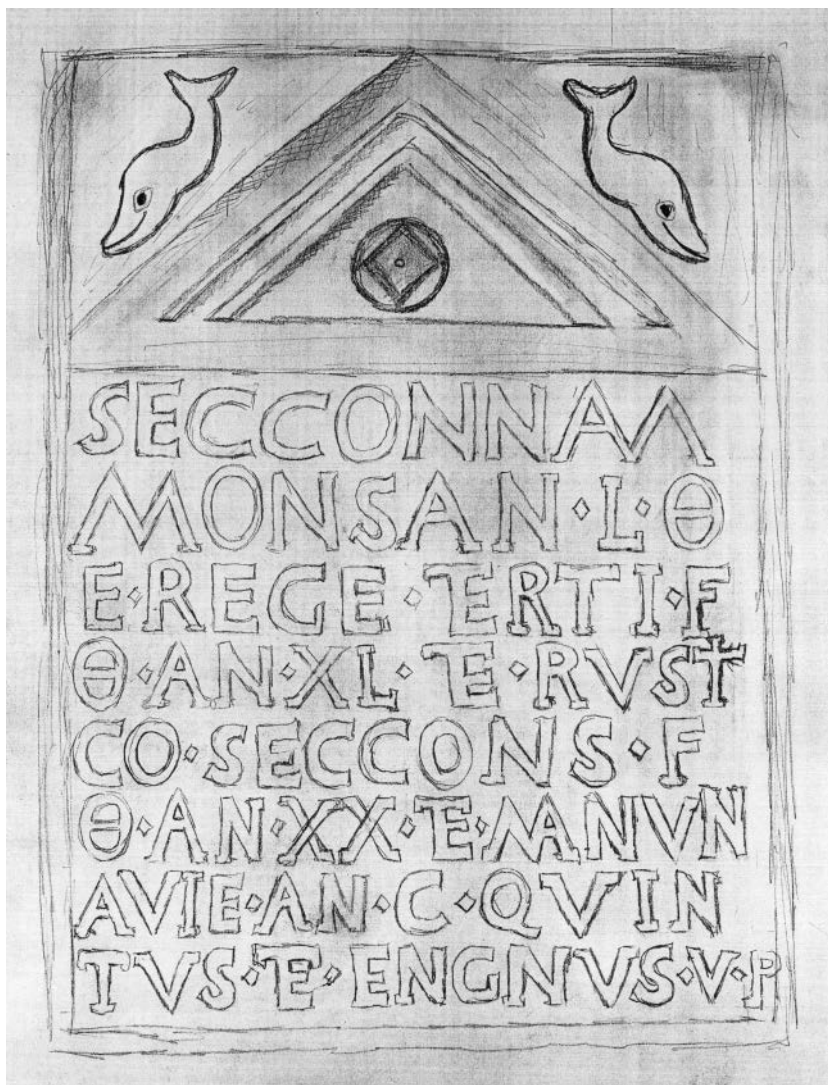 SECCONNAΛ
MONSAN·L·Θ
E·REGE·TERTI·F
Θ·AN·XL·ET·RVSTI
CO·SECCONS·F
Θ·AN·XX·ET·MANVN
AVIE·AN·C·QVIN
TVS·ET·ENGNVS·V·P